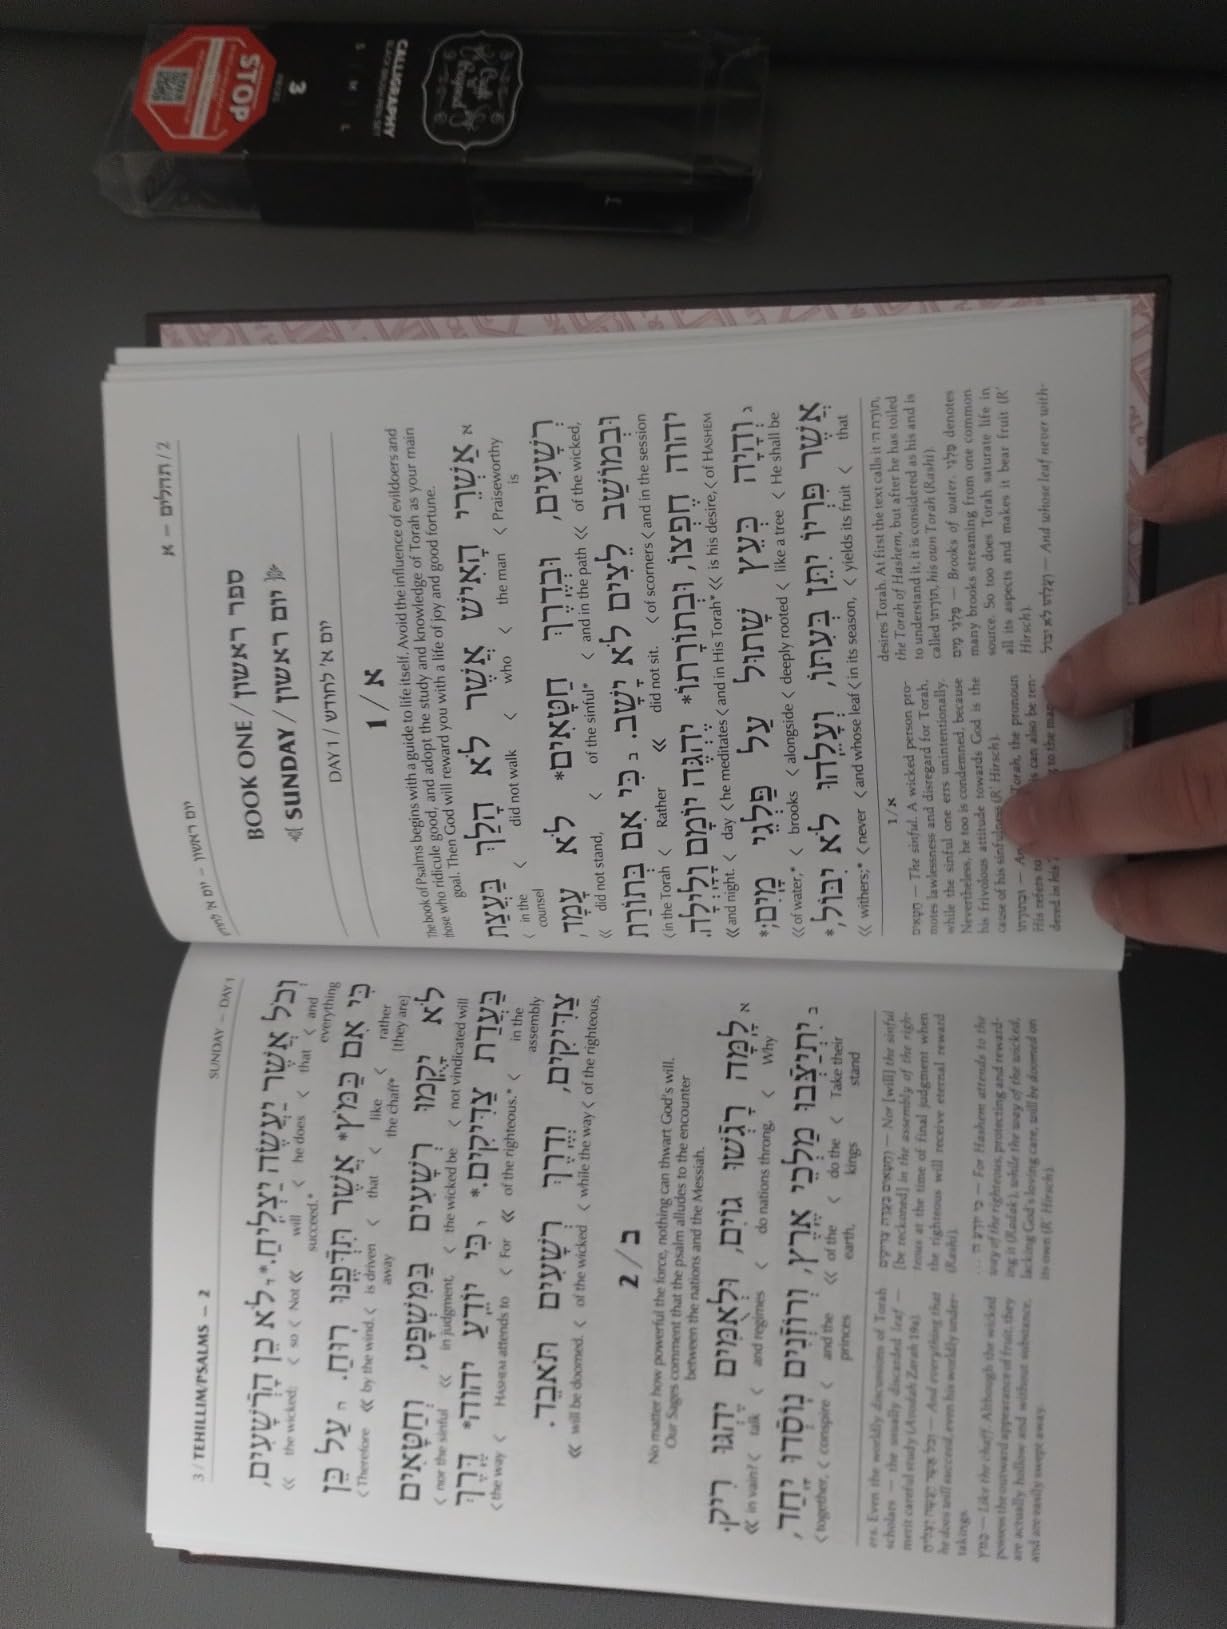 STOP
PACKS
3
S M L
CALLIGRAPHY
BLACK BRUSH PEN SET
Craft
Beyond
2 / תהלים – א
יום ראשון – יום א לחודש
BOOK ONE / ספר ראשון
SUNDAY / יום ראשון
DAY 1 / יום א' לחודש
1 / א
The book of Psalms begins with a guide to life itself. Avoid the influence of evildoers and
those who ridicule good, and adopt the study and knowledge of Torah as your main
goal. Then God will reward you with a life of joy and good fortune.
א אַשְׁרֵי הָאִישׁ אֲשֶׁר לֹא הָלַךְ בַּעֲצַת
‹ Praiseworthy is ‹ the man ‹ who ‹ did not walk ‹ in the counsel
רְשָׁעִים, וּבְדֶרֶךְ חַטָּאִים* לֹא עָמָד,
of the wicked, « and in the path ‹ of the sinful* ‹ did not stand, «
וּבְמוֹשַׁב לֵצִים לֹא יָשָׁב. ב כִּי אִם בְּתוֹרַת
‹ and in the session ‹ of scorners « did not sit. Rather ‹ in the Torah
יהוה חֶפְצוֹ, וּבְתוֹרָתוֹ* יֶהְגֶּה יוֹמָם וָלָיְלָה.
‹ of HASHEM ‹ is his desire, « and in His Torah* ‹ he meditates ‹ day ‹ and night. «
ג וְהָיָה כְּעֵץ שָׁתוּל עַל פַּלְגֵי מָיִם;*
‹ He shall be ‹ like a tree ‹ deeply rooted ‹ alongside ‹ brooks ‹ of water,* «
אֲשֶׁר פִּרְיוֹ יִתֵּן בְּעִתּוֹ, וְעָלֵהוּ לֹא יִבּוֹל,*
‹ that ‹ yields its fruit ‹ in its season, ‹ and whose leaf ‹ never ‹ withers;* «
1/א
חטאים — The sinful. A wicked person pro-
motes lawlessness and disregard for Torah,
while the sinful one errs unintentionally.
Nevertheless, he too is condemned, because
his frivolous attitude towards God is the
cause of his sinfulness (R' Hirsch).
ובתורתו — Torah, the pronoun
His refers to can also be ren-
dered in his to the
desires Torah. At first the text calls it תורת ה',
the Torah of Hashem, but after he has toiled
to understand it, it is considered as his and is
called תורתו, his own Torah (Rashi).
פלגי מים — Brooks of water. פלגי denotes
many brooks streaming from one common
source. So too does Torah saturate life in
all its aspects and makes it bear fruit (R'
Hirsch).
ועלהו לא יבול — And whose leaf never with-
3 / TEHILLIM/PSALMS – 2
SUNDAY – DAY 1
וְכֹל אֲשֶׁר יַעֲשֶׂה יַצְלִיחַ.* ד לֹא כֵן הָרְשָׁעִים,
‹ and everything ‹ that ‹ he does ‹ will succeed.* « Not ‹ so ‹ the wicked; «
כִּי אִם כַּמֹּץ* אֲשֶׁר תִּדְּפֶנּוּ רוּחַ. ה עַל כֵּן
rather [they are] ‹ like the chaff* ‹ that ‹ is driven away ‹ by the wind. « Therefore ‹
לֹא יָקֻמוּ רְשָׁעִים בַּמִּשְׁפָּט, וְחַטָּאִים
‹ not vindicated will ‹ the wicked be ‹ in judgment, « nor the sinful ‹
בַּעֲדַת צַדִּיקִים.* ו כִּי יוֹדֵעַ יהוה* דֶּרֶךְ
‹ in the assembly ‹ of the righteous.* « For ‹ HASHEM attends to ‹ the way ‹
צַדִּיקִים, וְדֶרֶךְ רְשָׁעִים תֹּאבֵד.
of the righteous, ‹ while the way ‹ of the wicked ‹ will be doomed. «
2 / ב
No matter how powerful the force, nothing can thwart God's will.
Our Sages comment that the psalm alludes to the encounter
between the nations and the Messiah.
א לָמָּה רָגְשׁוּ גוֹיִם, וּלְאֻמִּים יֶהְגּוּ רִיק.
‹ Why ‹ do nations throng, ‹ and regimes ‹ talk ‹ in vain? «
ב יִתְיַצְּבוּ מַלְכֵי אֶרֶץ, וְרוֹזְנִים נוֹסְדוּ יָחַד,
‹ Take their stand ‹ do the kings ‹ of the earth, « and the princes ‹ conspire ‹ together, ‹
ers. Even the worldly discussions of Torah
scholars — the usually discarded leaf —
merit careful study (Avodah Zarah 19a).
וכל אשר יעשה יצליח — And everything that
he does will succeed, even his worldly under-
takings.
כמץ — Like the chaff. Although the wicked
possess the outward appearance of fruit, they
are actually hollow and without substance,
and are easily swept away.
וחטאים בעדת צדיקים — Nor [will] the sinful
[be reckoned] in the assembly of the righ-
teous at the time of final judgment when
the righteous will receive eternal reward
(Rashi).
כי יודע ה' ... — For Hashem attends to the
way of the righteous, protecting and reward-
ing it (Radak), while the way of the wicked,
lacking God's loving care, will be doomed on
its own (R' Hirsch).